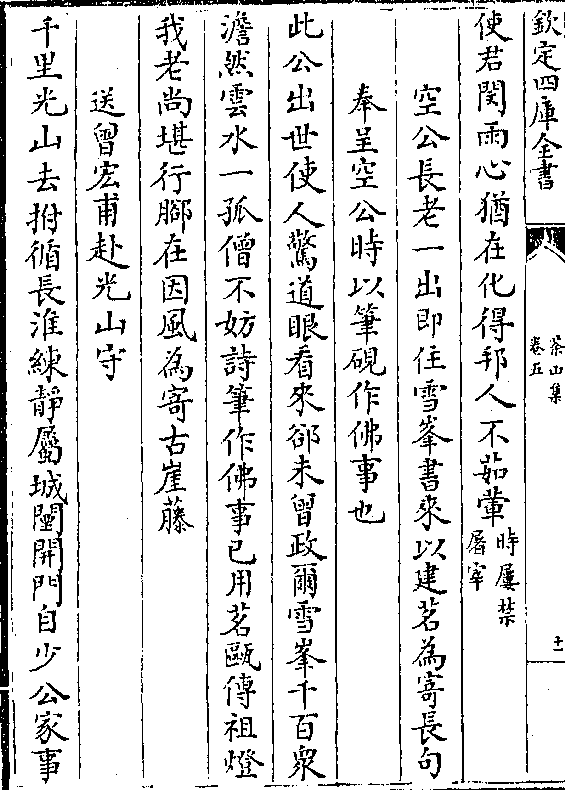 欽定四庫全書
茶山集
卷五
十一
使君閔雨心猶在化得邦人不茹葷時屢禁
屠宰
空公長老一出即住雪峯書來以建茗為寄長句
奉呈空公時以筆硯作佛事也
此公出世使人驚道眼看來卻未曾政爾雪峯千百衆
澹然雲水一孤僧不妨詩筆作佛事已用茗甌傳祖燈
我老尚堪行腳在因風為寄古崖藤
送曾宏甫赴光山守
千里光山去拊循長淮練靜屬城闉開門自少公家事